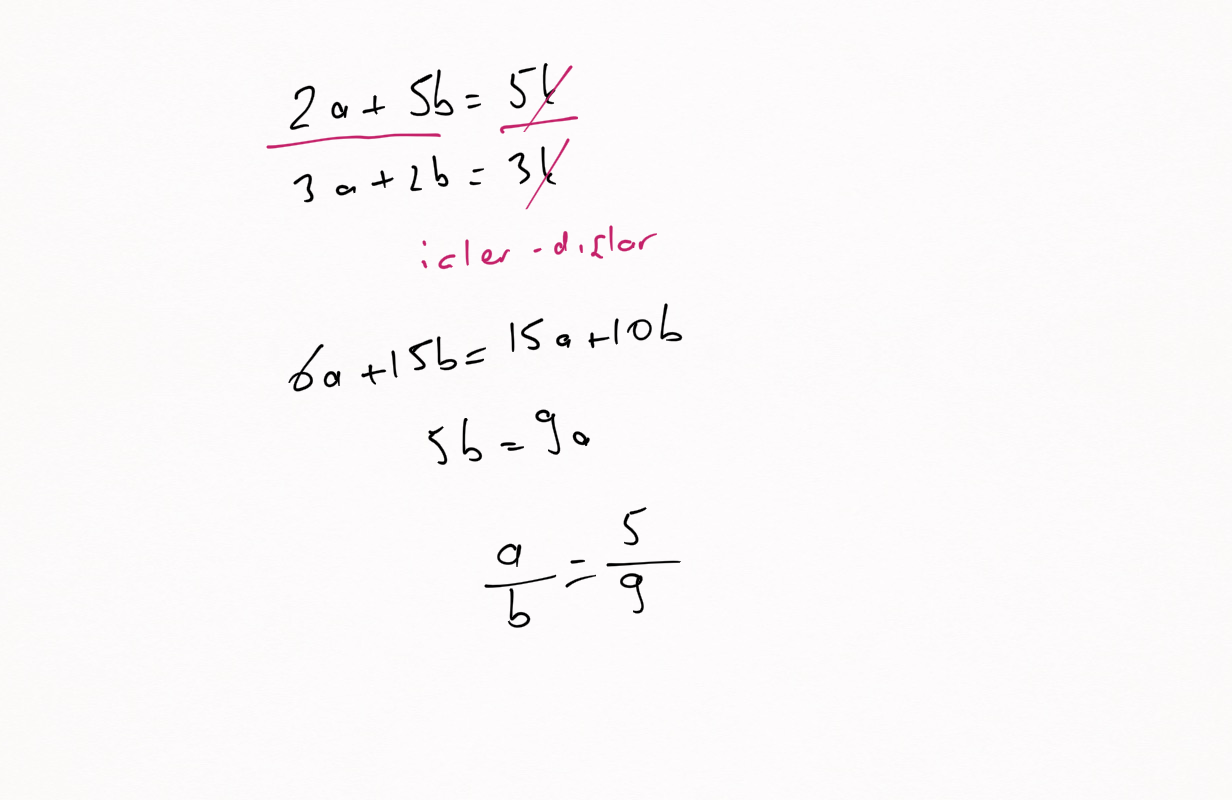 2a + 5b = 5k
3a + 2b = 3k
içler - dışlar
6a + 15b = 15a + 10b
5b = 9a
a/b = 5/9